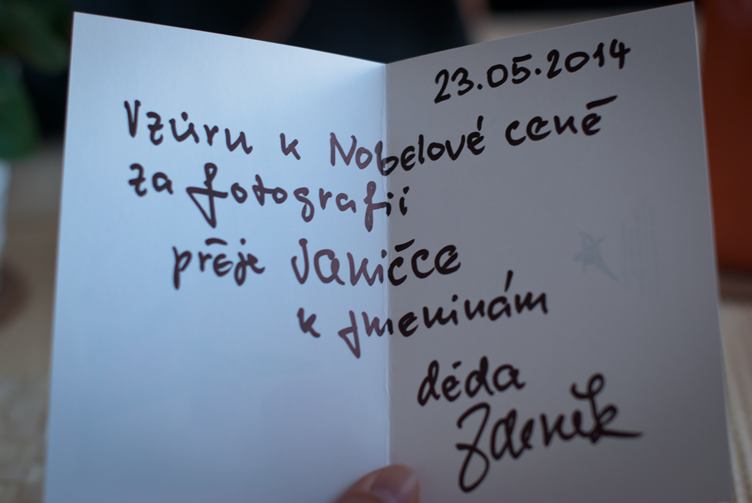 23.05.2014
Vzůru k Nobelově ceně
za fotografii
přeje Janičce
k jmeninám
děda
Zdeněk